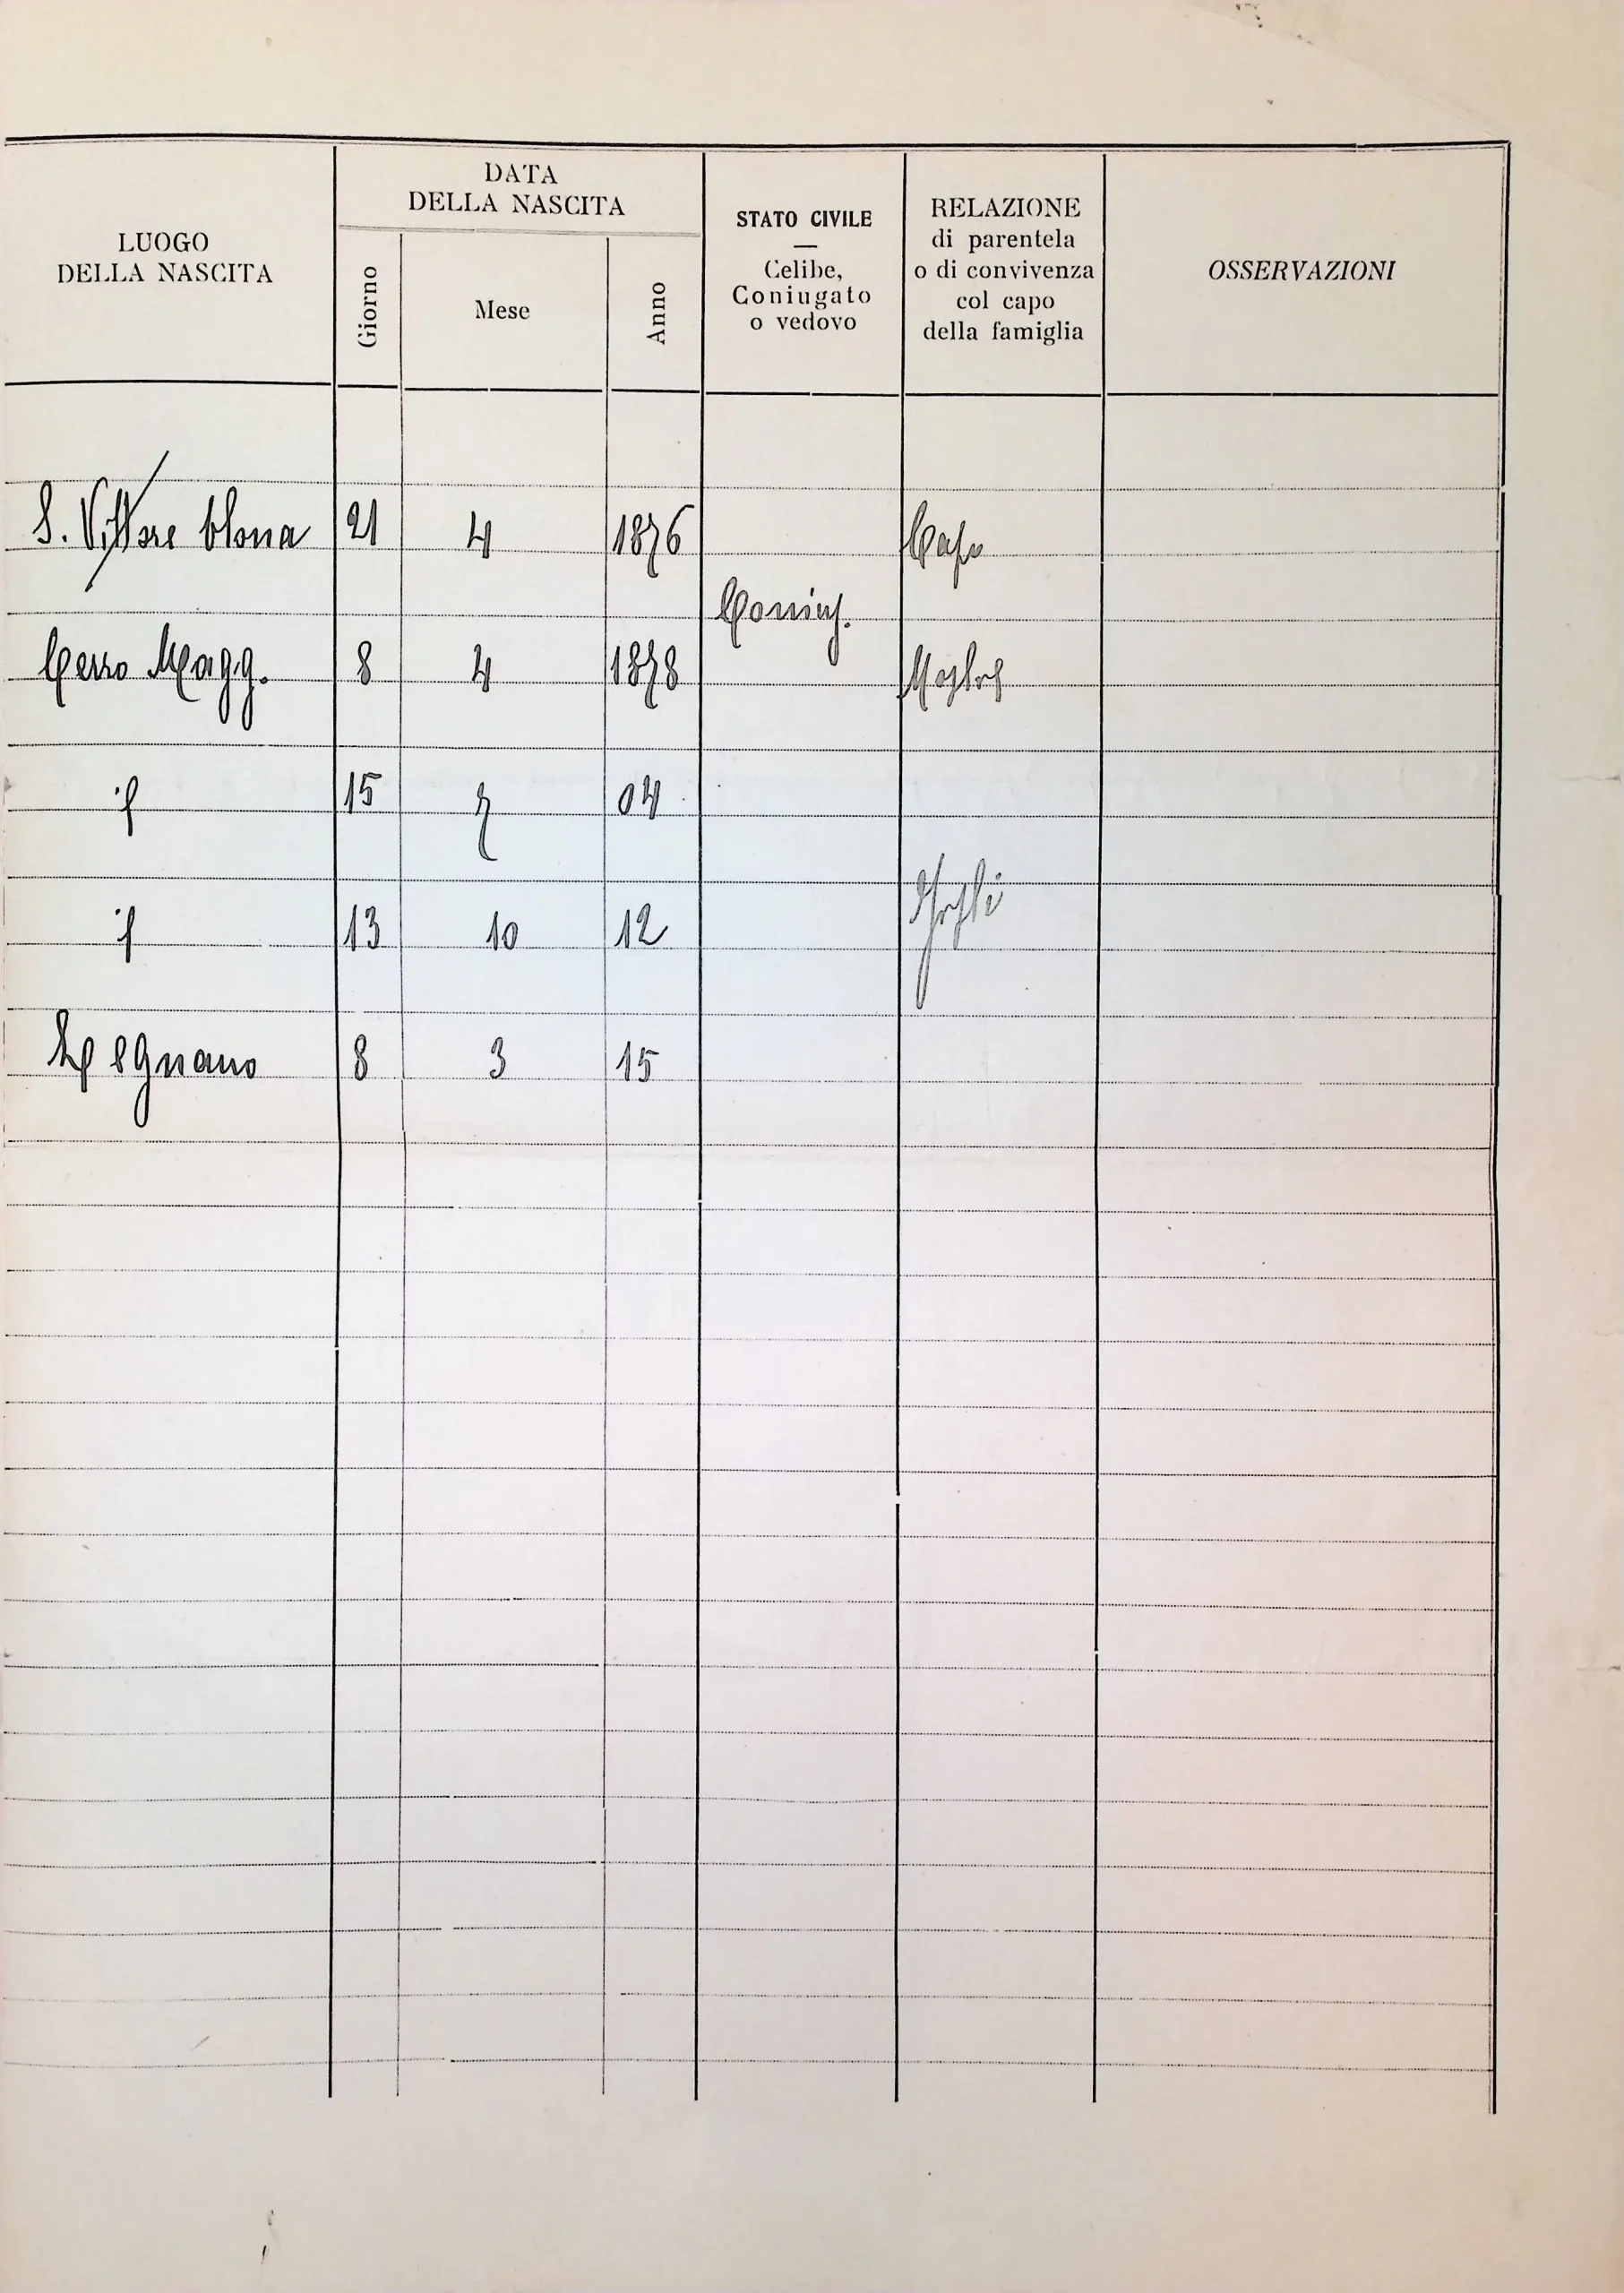 LUOGO
DELLA NASCITA
DATA
DELLA NASCITA
Giorno
Mese
Anno
STATO CIVILE
—
Celibe,
Coniugato
o vedovo
RELAZIONE
di parentela
o di convivenza
col capo
della famiglia
OSSERVAZIONI
S. Vittore Olona 21 4 1876 Capo
Coniug.
Cerro Magg. 8 4 1878 Moglie
id 15 7 04
Figli
id 13 10 12
Legnano 8 3 15